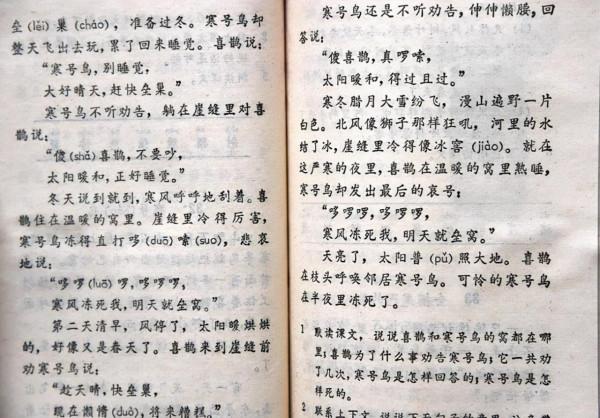 垒(lěi)巢(cháo)，准备过冬。寒号鸟却
整天飞出去玩，累了回来睡觉。喜鹊说：
“寒号鸟，别睡觉，
大好晴天，赶快垒巢。”
寒号鸟不听劝告，躺在崖缝里对喜
鹊说：
“傻(shǎ)喜鹊，不要吵，
太阳暖和，正好睡觉。”
冬天说到就到，寒风呼呼地刮着。喜
鹊住在温暖的窝里。崖缝里冷得厉害，
寒号鸟冻得直打哆(duō)嗦(suo)，悲哀
地说：
“哆啰(luō)啰，哆啰啰，
寒风冻死我，明天就垒窝。”
第二天清早，风停了，太阳暖烘烘
的，好像又是春天了。喜鹊来到崖缝前
劝寒号鸟说：
“趁天晴，快垒巢，
现在懒惰(duò)，将来糟糕。”
寒号鸟还是不听劝告，伸伸懒腰，回
答说：
“傻喜鹊，真啰嗦，
太阳暖和，得过且过。”
寒冬腊月大雪纷飞，漫山遍野一片
白色。北风像狮子那样狂吼，河里的水
结了冰，崖缝里冷得像冰窖(jiào)。就在
这严寒的夜里，喜鹊在温暖的窝里熟睡，
寒号鸟却发出最后的哀号：
“哆啰啰，哆啰啰，
寒风冻死我，明天就垒窝。”
天亮了，太阳普(pǔ)照大地。喜鹊
在枝头呼唤邻居寒号鸟。可怜的寒号鸟
在半夜里冻死了。
1 默读课文，说说喜鹊和寒号鸟的窝都在哪
里；喜鹊为了什么事劝告寒号鸟，它一共劝
了几次，寒号鸟是怎样回答的；寒号鸟是怎
样死的。
2 联系上下文，说说下